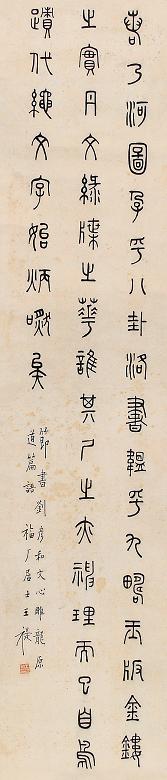 若乃河圖孕乎八卦洛書韞乎九疇玉版金鏤
之實丹文綠牒之華誰其尸之亦神理而已自鳥
蹟代繩文字始炳矣
節書劉彥和文心雕龍原
道篇語 福厂居士王禔